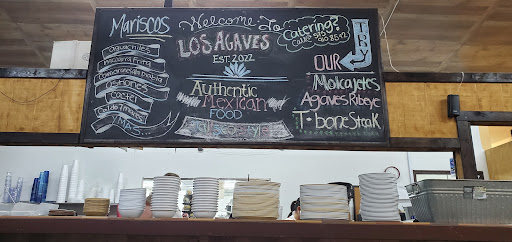 Mariscos
Aguachiles
Mojarra Frita
Camarones a la Diabla
Ostiones
Coctel
Caldo de 7 mares
Y MAS...
Welcome To
LOS AGAVES
EST. 2022
Authentic
Mexican
FOOD
Jalisco style
Catering?
Call
TRY
OUR
Molcajetes
Agaves Ribeye
T-bone Steak